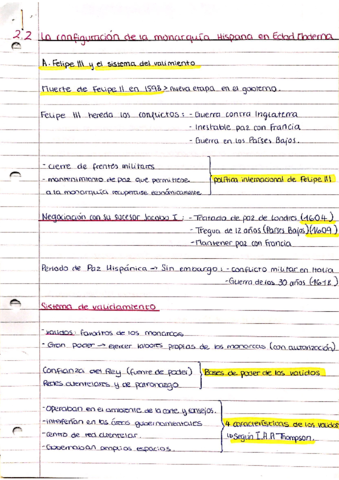 2.2 La configuración de la monarquía Hispana en Edad Moderna
A. Felipe III y el sistema del valimiento
Muerte de Felipe II en 1598 > nueva etapa en el gobierno.
Felipe III hereda los conflictos: - Guerra contra Inglaterra
- Inestable paz con Francia
- Guerra en los Países Bajos.
- Cierre de frentes militares
- mantenimiento de paz que permitiese
a la monarquía recuperarse económicamente
política internacional de Felipe III
Negociación con su sucesor Jacobo I: - Tratado de paz de Londres (1604)
- Tregua de 12 años (Países Bajos) (1609)
- Mantener paz con Francia
Periodo de Paz Hispánica → Sin embargo: - conflicto militar en Italia
- Guerra de los 30 años (1618)
Sistema de
- Validos: favoritos de los monarcas
- Gran poder → ejercer labores propias de los monarcas (con autorización).
Confianza del Rey (fuente de poder)
Redes clientelares y de patronazgo
Bases de poder de los validos
- Operaban en el ambiente de la corte y consejos.
- Interferían en las áreas gubernamentales
- centro de red clientelar
- Gobernaban amplios espacios.
4 características de los validos
según I.A.A Thompson.